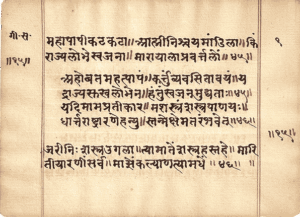 गी॰स॰
॥१५॥
महापापीकठकटा॥आत्मीनिश्चयमांडिला॥किं
राज्यलोभेंस्वजना॥मारायालाप्रवर्तलों॥४५॥
अहोबतमहत्पापं॥कर्तुंव्यवसितावयं॥य
द्राज्यसुखलोभेन॥हंतुंस्वजनमुद्यताः॥४५॥
यदिमामप्रतीकार॥मशस्त्रंशस्त्रपाणयः॥
धार्तराष्ट्रारणेहन्यु॥स्तन्मेक्षेमतरंभवेत्॥४६॥
जरीनिःशस्त्रउगला॥त्यामातेंशस्त्रहस्तहे॥मारि
तीयारणींसर्व॥माझेंकल्याणत्यामधें॥४६॥
॥१५॥
१